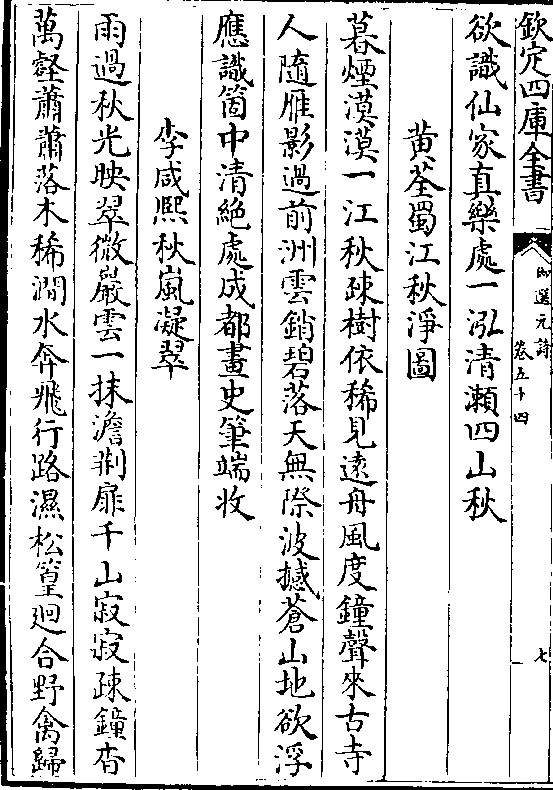 欽定四庫全書
御選元詩
卷五十四
七
欲識仙家真樂處一泓清瀨四山秋
黄荃蜀江秋淨圖
暮煙漠漠一江秋疎樹依稀見遠舟風度鐘聲來古寺
人隨雁影過前洲雲銷碧落天無際波撼蒼山地欲浮
應識箇中清絶處成都畫史筆端收
李咸熙秋嵐凝翠
雨過秋光映翠微巖雲一抹澹荆扉千山寂寂疎鐘杳
萬壑蕭蕭落木稀澗水奔飛行路濕松篁迴合野禽歸